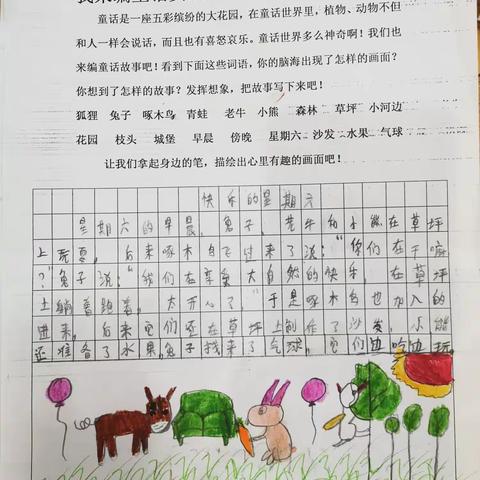 童话是一座五彩缤纷的大花园，在童话世界里，植物、动物不但
和人一样会说话，而且也有喜怒哀乐。童话世界多么神奇啊！我们也
来编童话故事吧！看到下面这些词语，你的脑海出现了怎样的画面？
你想到了怎样的故事？发挥想象，把故事写下来吧！
狐狸 兔子 啄木鸟 青蛙 老牛 小熊 森林 草坪 小河边
花园 枝头 城堡 早晨 傍晚 星期六 沙发 水果 气球
让我们拿起身边的笔，描绘出心里有趣的画面吧！
快乐的星期六
星期六的早晨，兔子、老牛和小熊在草坪
上玩耍，后来啄木鸟飞过来了说：“你们在干嘛
？”兔子说：“我们在享受大自然的快乐，在草坪
上躺着跑着，太开心了。”于是啄木鸟也加入的
进来，后来它们还在草坪上制作了沙发，小熊
还准备了水果，兔子找来了气球，它们边吃边玩，